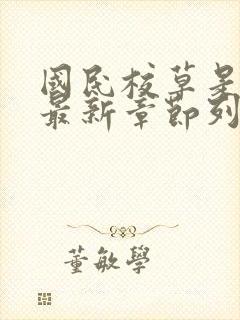 國民校草是
最新章節列
董敏學